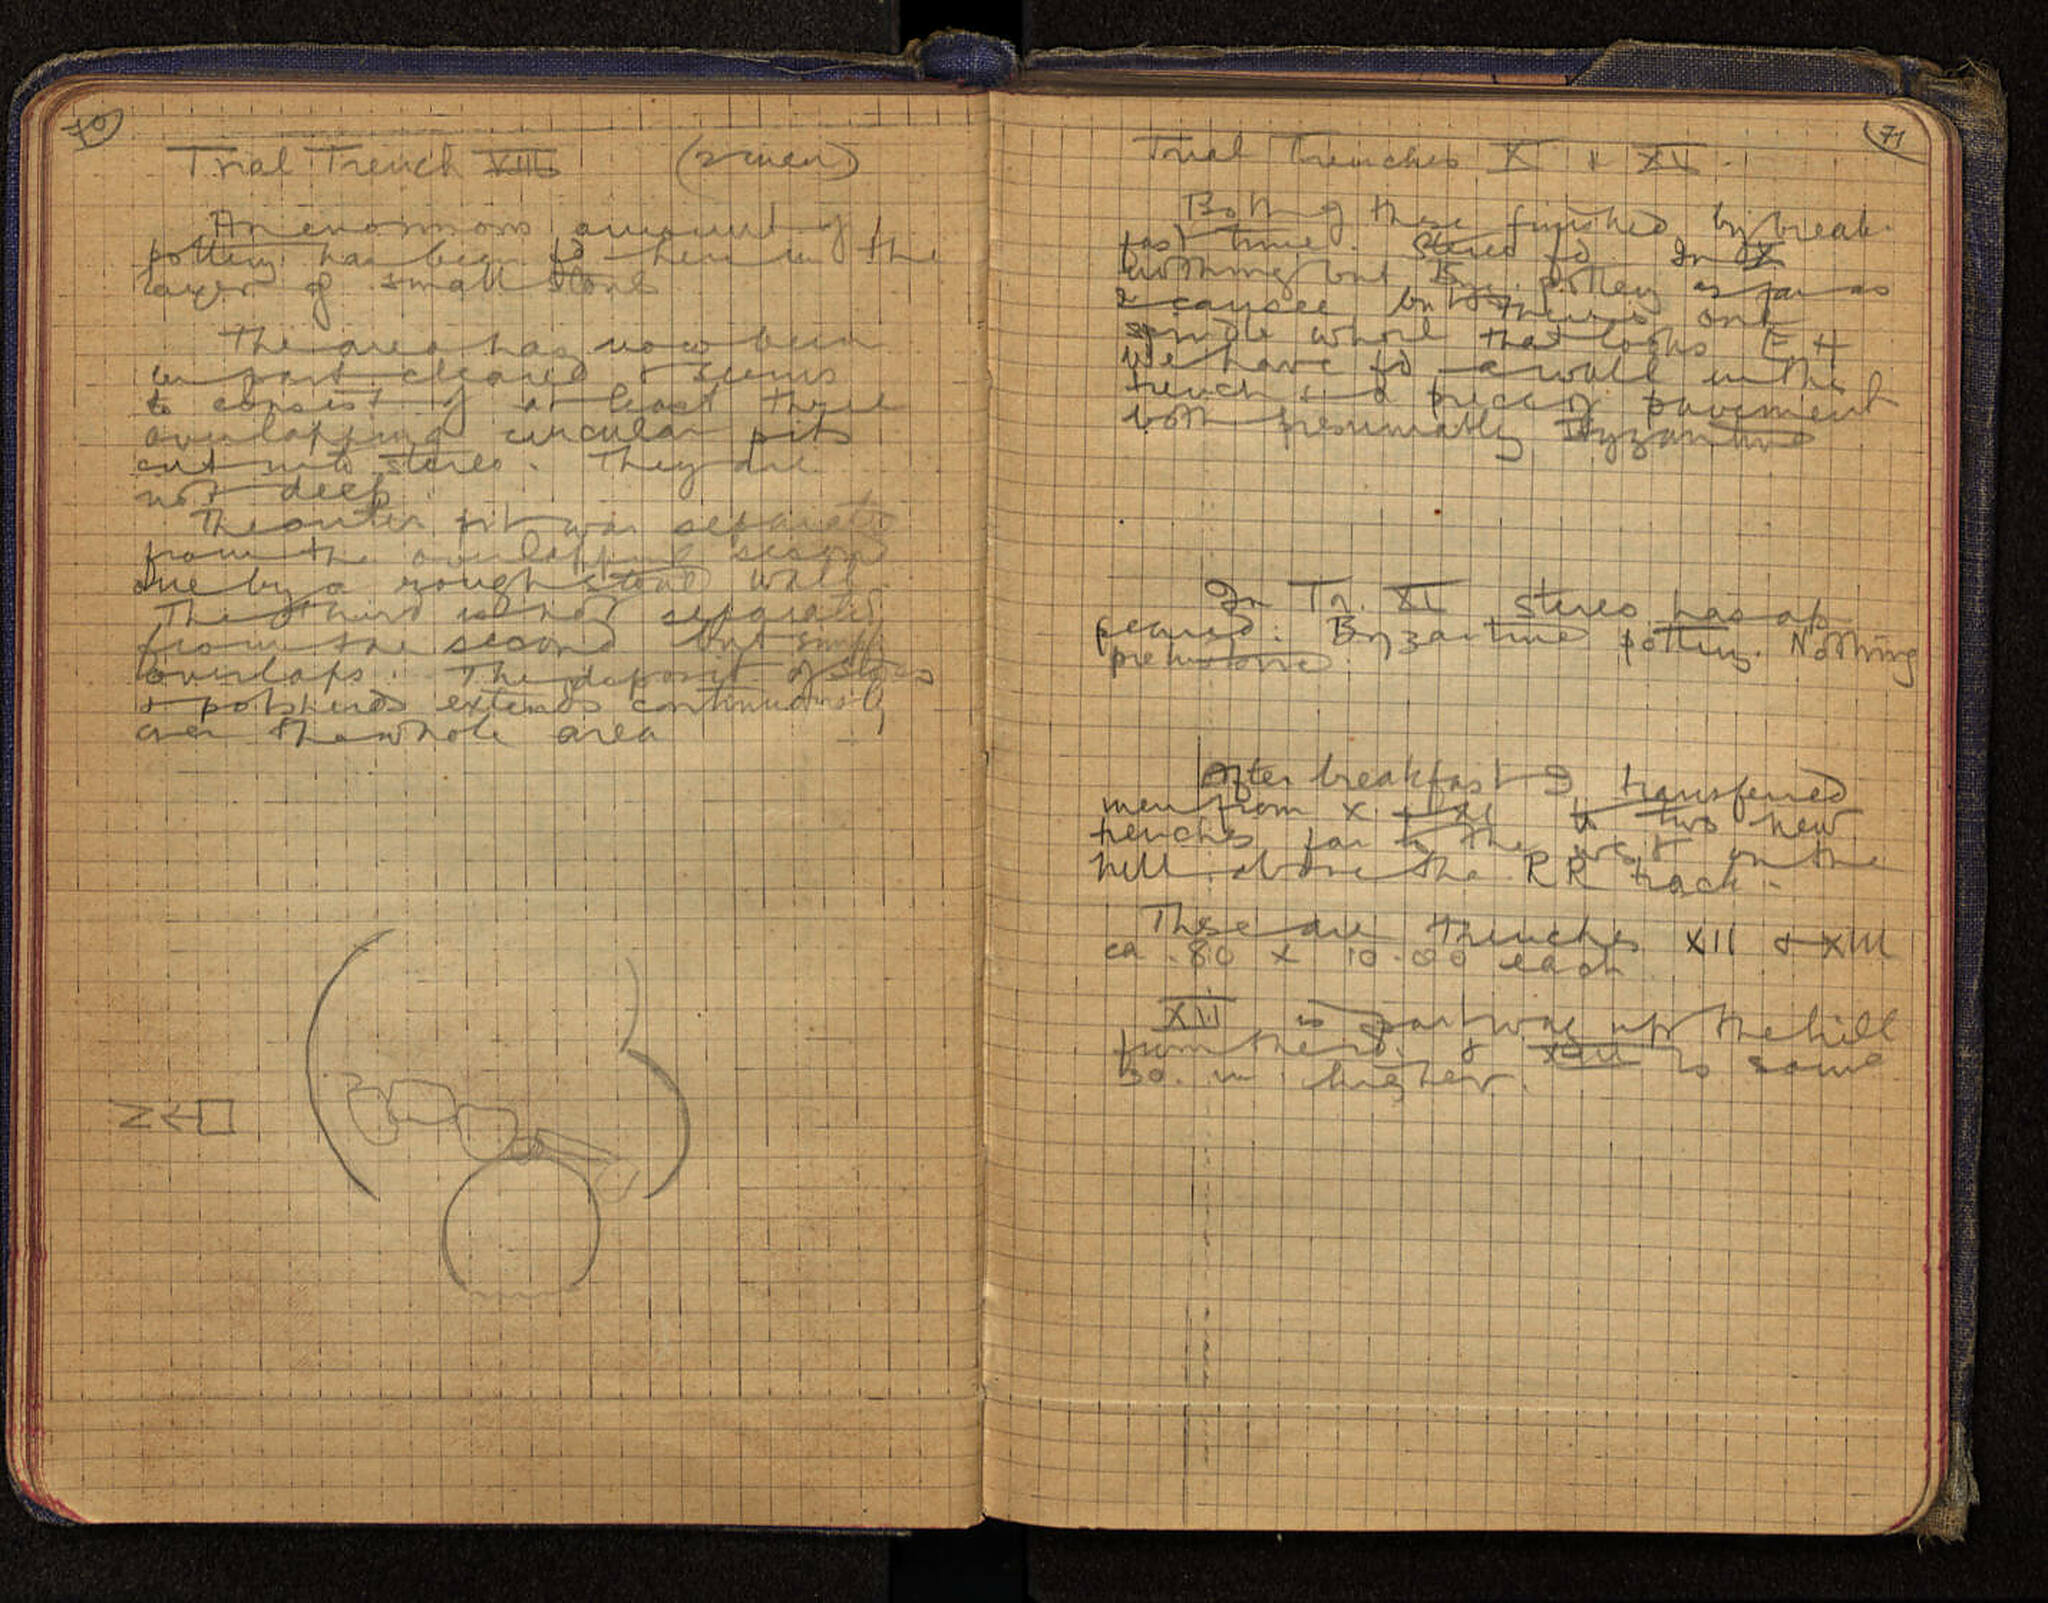 70
Trial Trench VIII (2 men)
An enormous amount of
pottery has been fd here in the
layer of small stones
The area has now been
in part cleared & seems
to consist of at least three
overlapping circular pits
cut into stereo. They are
not deep.
The outer pit was separated
from the overlapping second
one by a rough stone wall
The third is not separated
from the second but simply
overlaps. The deposit of stones
& potsherds extends continuously
over the whole area
N
71
Trial Trenches X & XI.
Both of these finished by break-
fast time. Stereo fd. In X
nothing but Byz. pottery as far as
I can see but there is one
spindle whorl that looks EH
We have fd a wall in this
trench & a piece of pavement
both presumably Byzantine
In Tr. XI stereo has ap
peared. Byzantine pottery. Nothing
prehistoric.
After breakfast I transferred
men from X & XI to two new
trenches far to the west on the
hill above the RR track.
These are trenches XII & XIII
ca .80 x 10.00 each
XII is part way up the hill
from the rd. & XIII is some
30. m. higher.